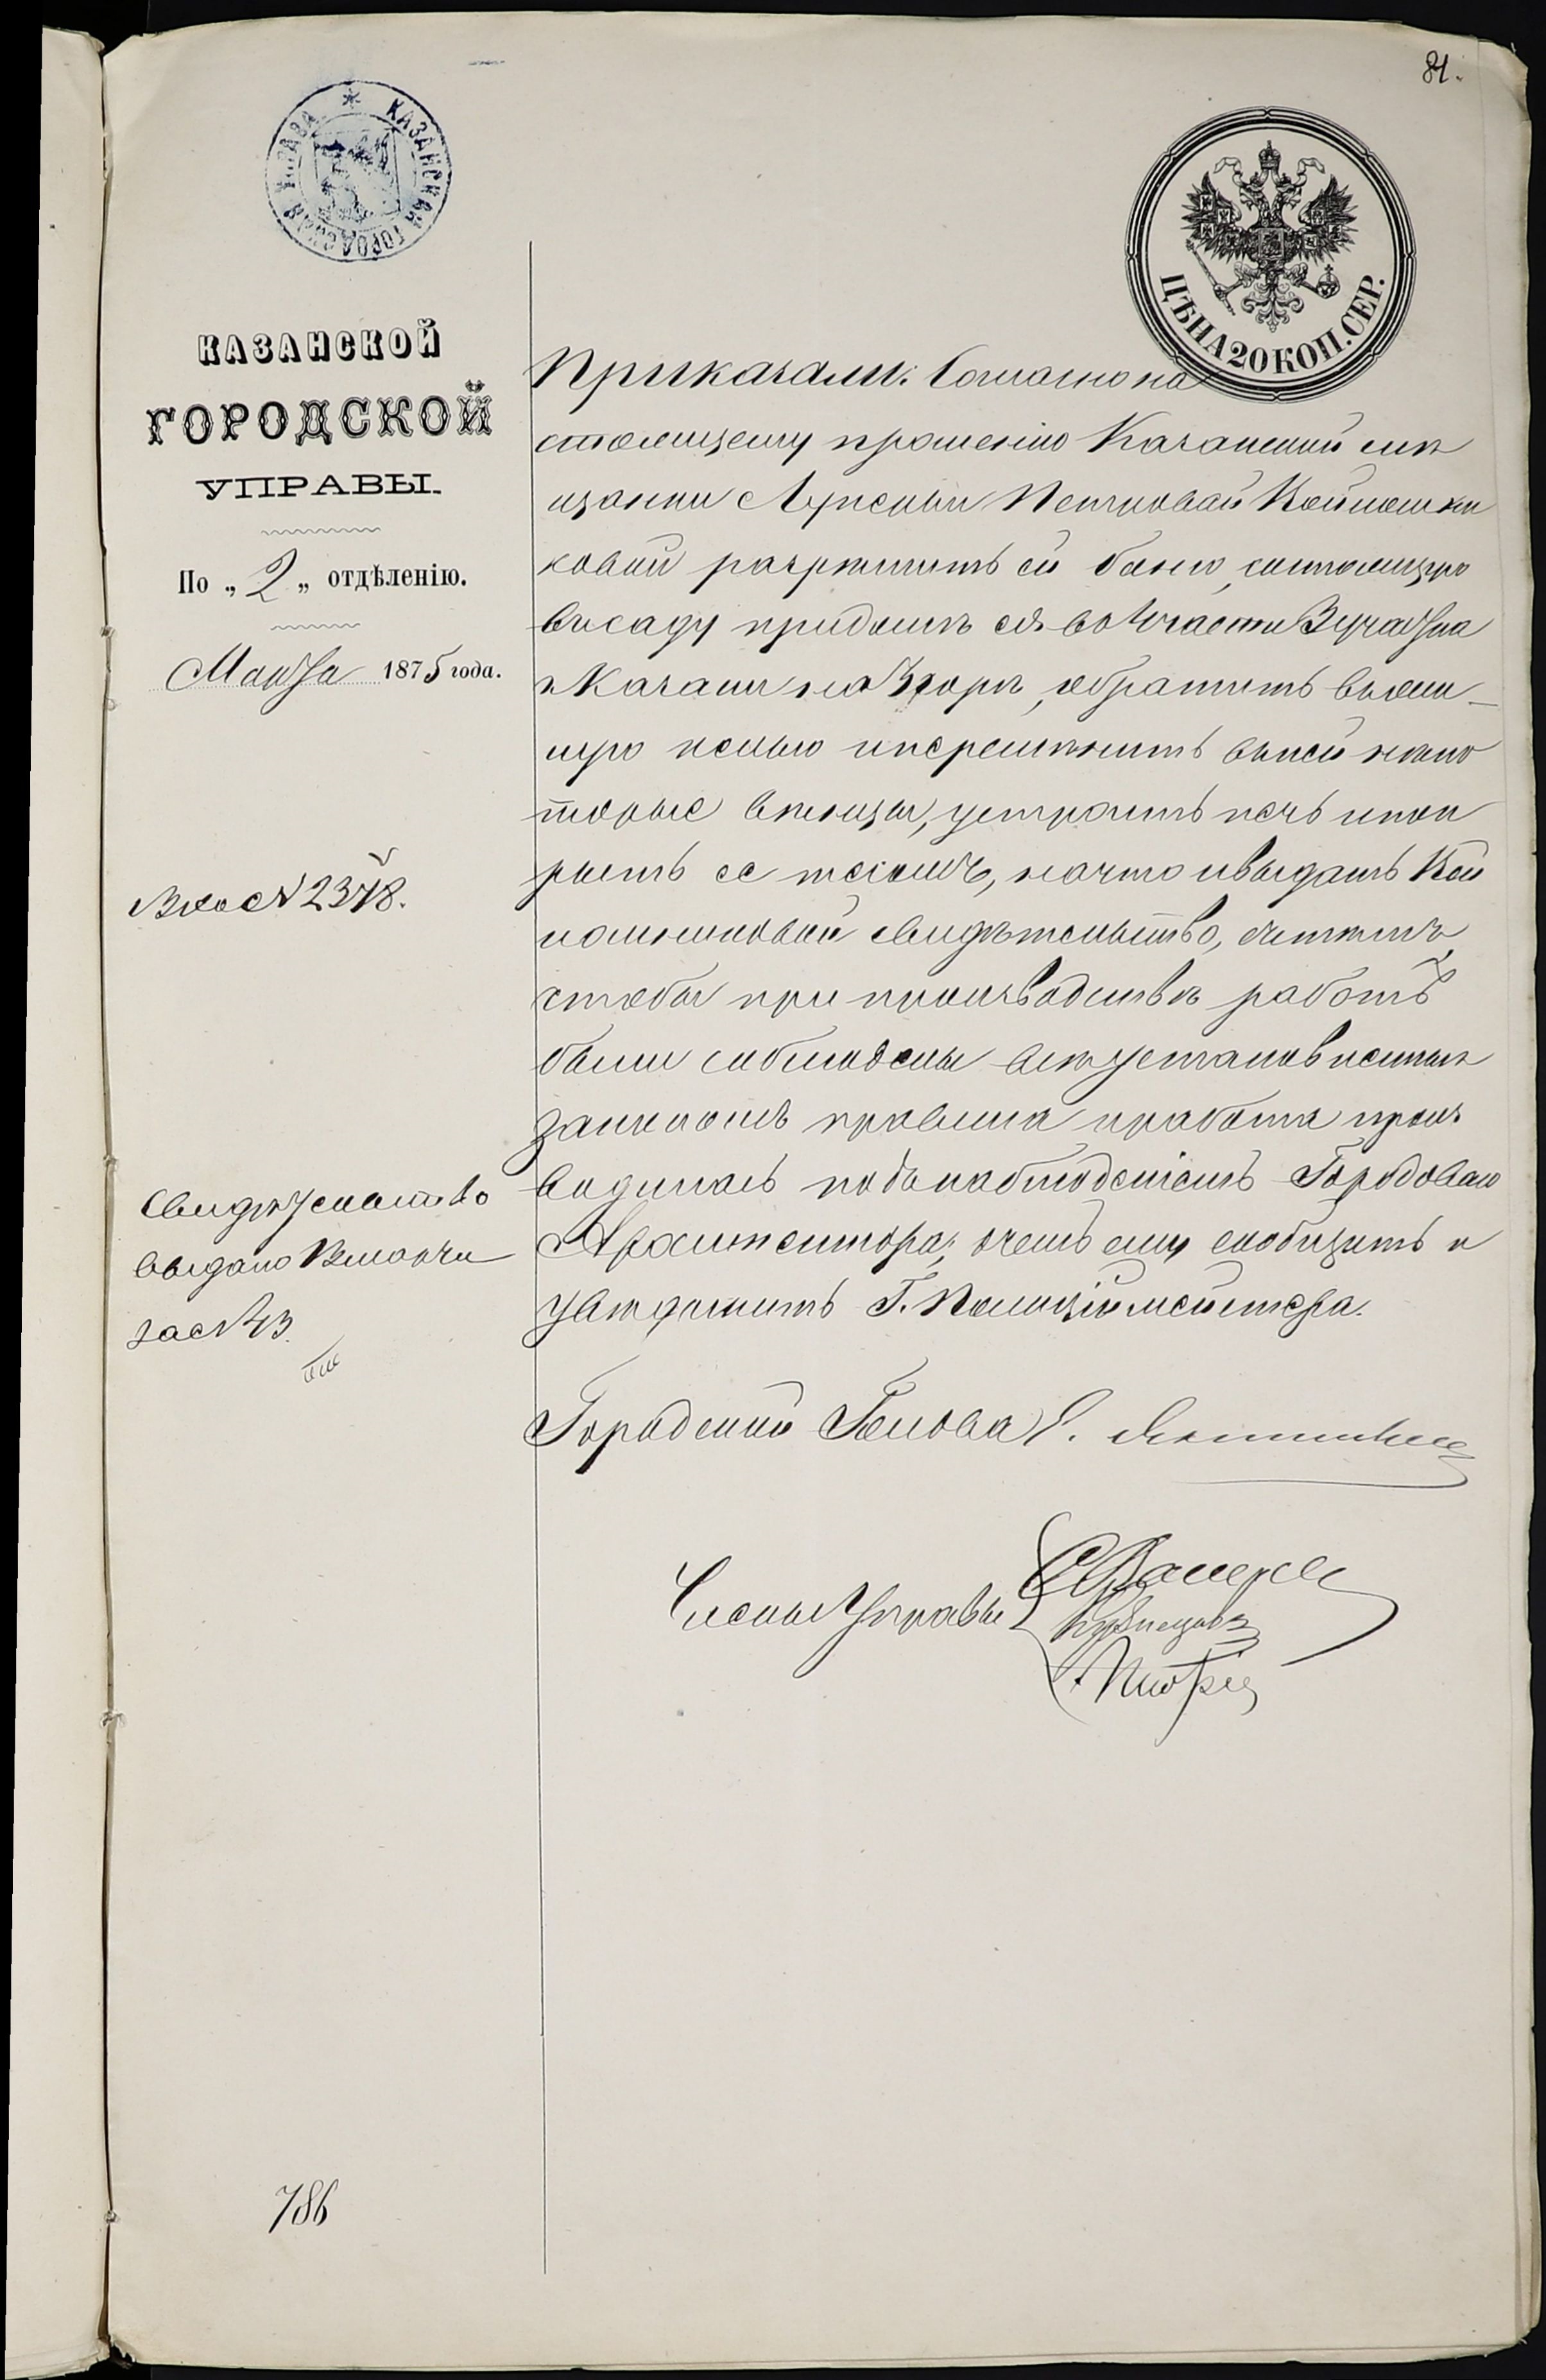 84.
КАЗАНСКАЯ ГОРОДСКАЯ УПРАВА
ЦѢНА 20 КОП. СЕР.
КАЗАНСКОЙ
ГОРОДСКОЙ
УПРАВЫ.
По „2„ отдѣленію.
Марта 1875 года.
Вход № 2378.
Свидѣтельство
выдано
за № 43
786
Приказали. Согласно на
стоящему прошенію Казанской мѣ
щанки Петровой
ковой разрѣшить ей баню, состоящую
въ саду при домѣ ея во части 3 участка
г. Казани на горѣ, обратить въ жи
лую келью и перемѣнить въ ней нѣко
торые вѣнцы, устроить печь и пок
рыть ее тесомъ, на что и выдать Кой
свидѣтельство, съ тѣмъ,
чтобы при производствѣ работъ
были соблюдены всѣ установленныя
закономъ правила и работа произ
водилась подъ наблюденіемъ Городоваго
Архитектора, о чемъ ему сообщить и
увѣдомить Г. Полиціймейстера.
Городской Голова
Члены Управы
Кузнецовъ